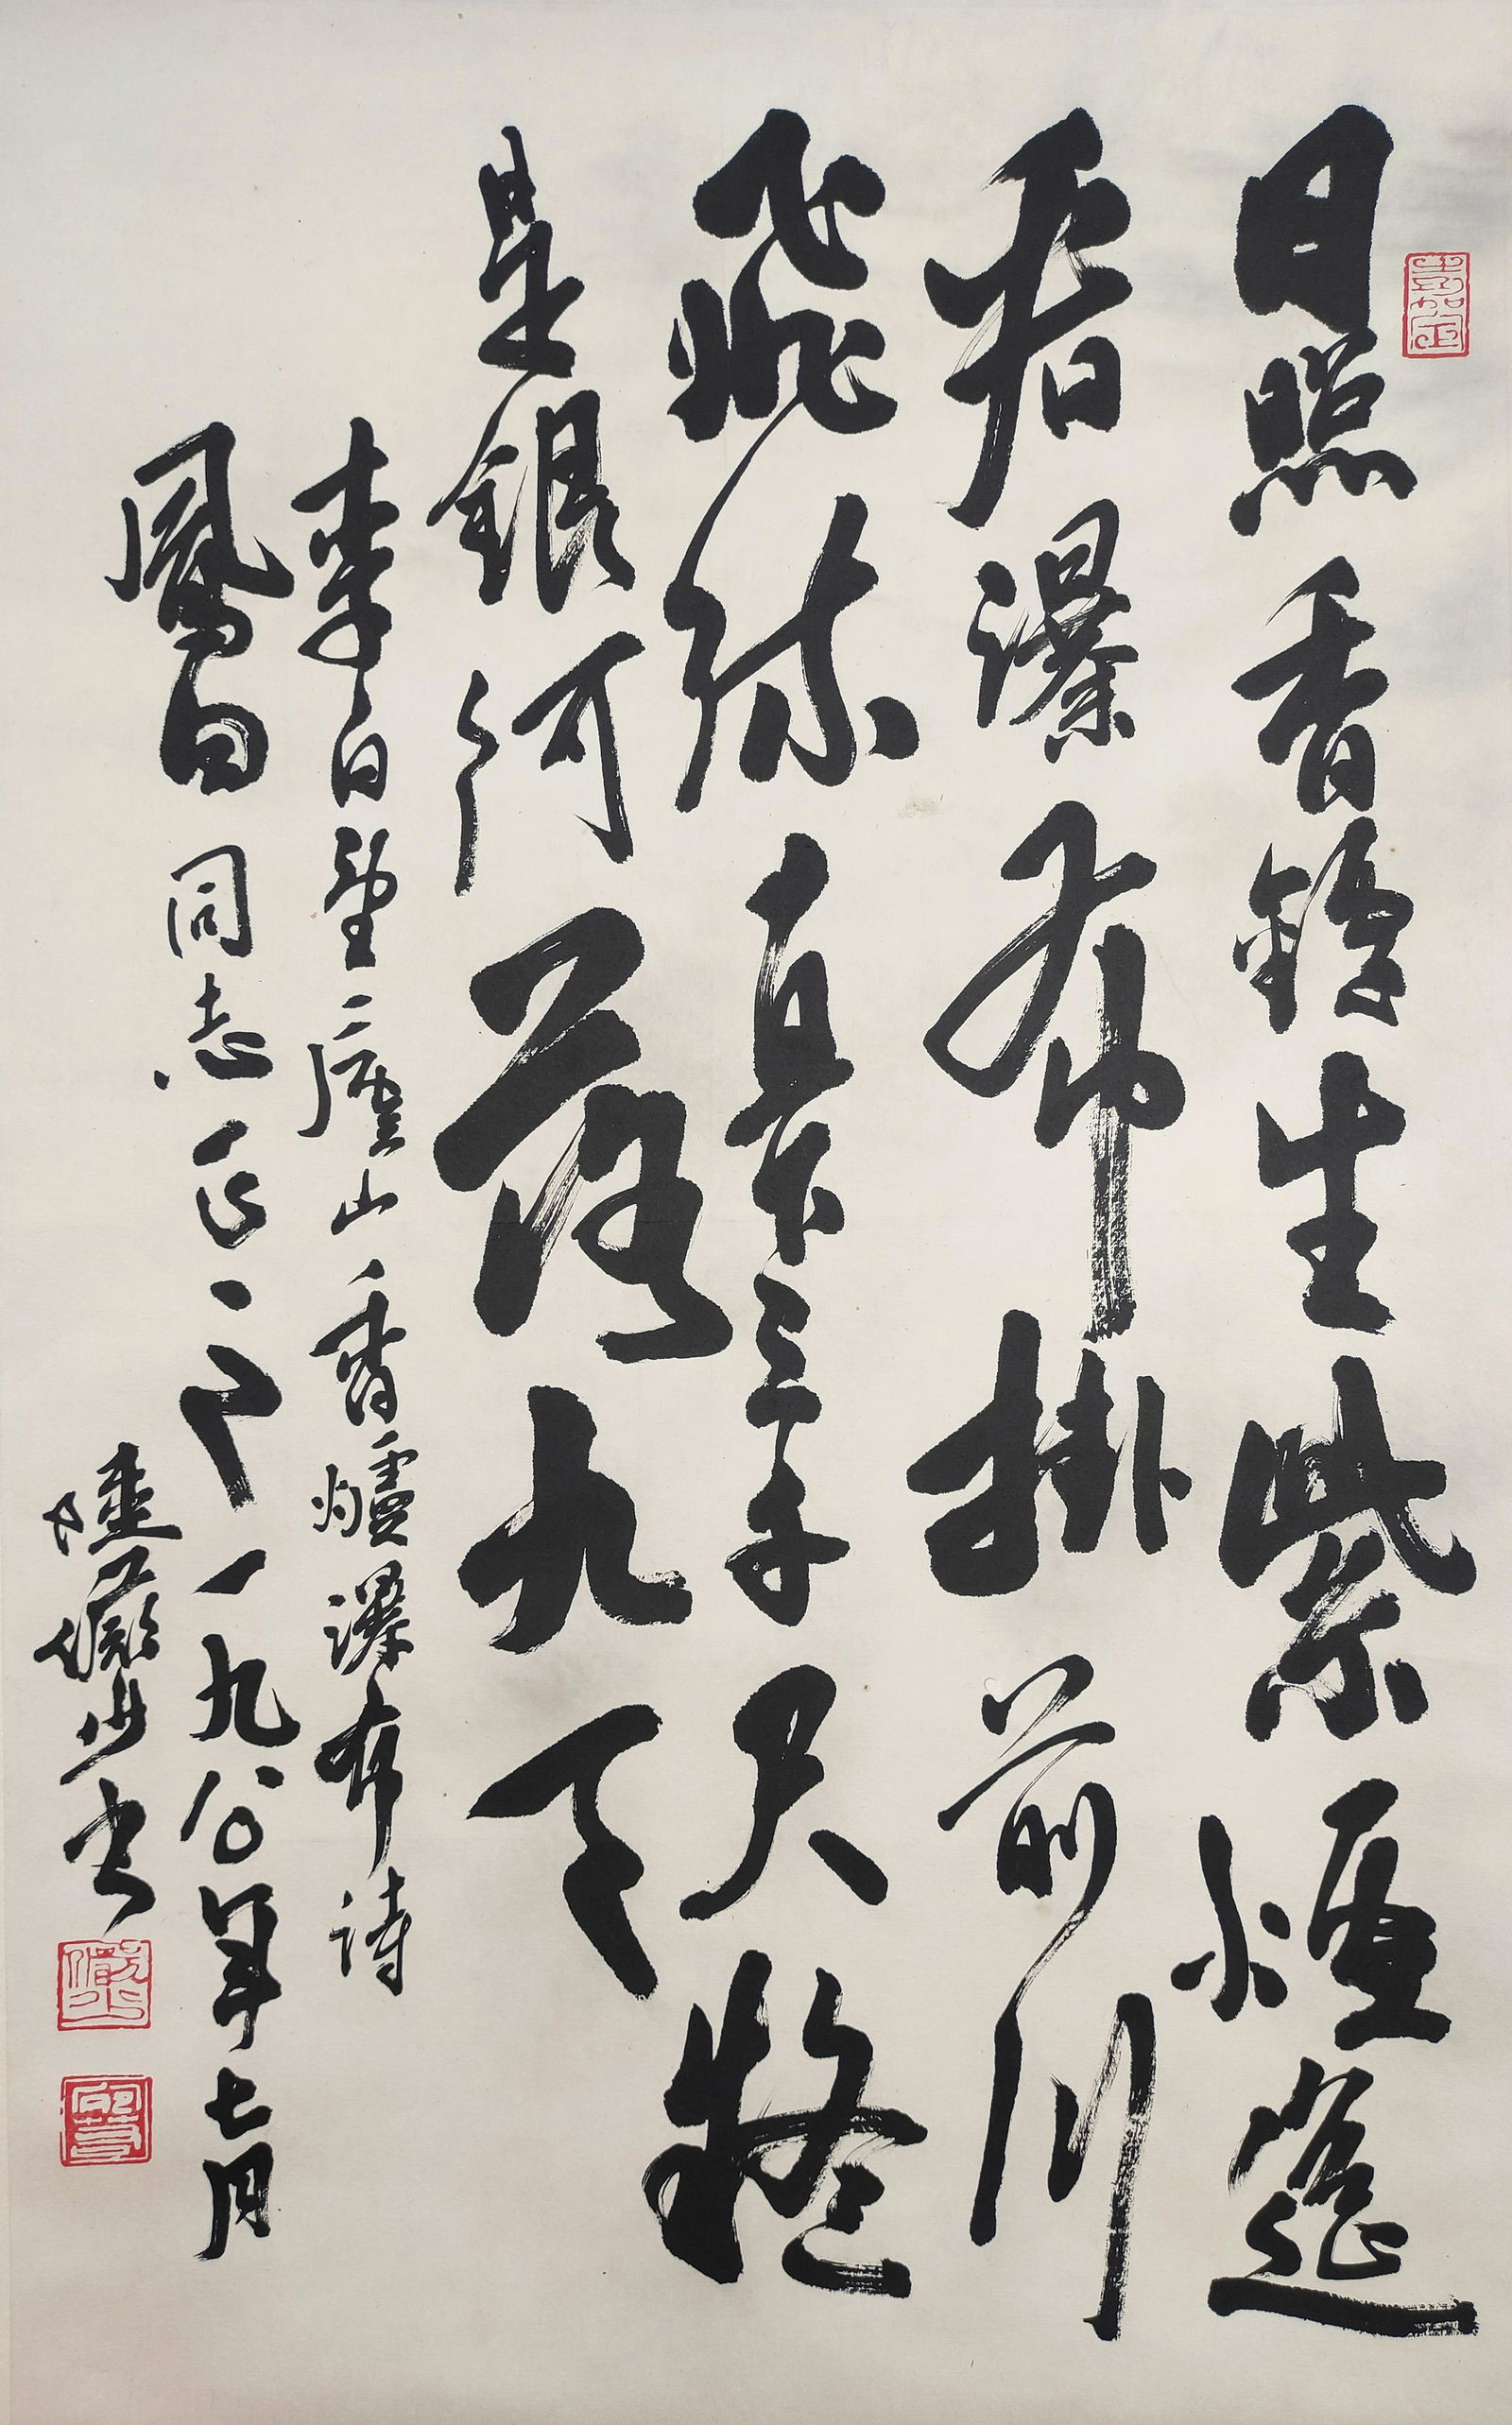 嘉定
日照香鑪生紫煙遙
看瀑布掛前川
飛流直下三千尺疑
是銀河落九天
李白望廬山香爐瀑布詩
鳳白同志正之一九八〇年七月
陸儼少書
儼少
宛若